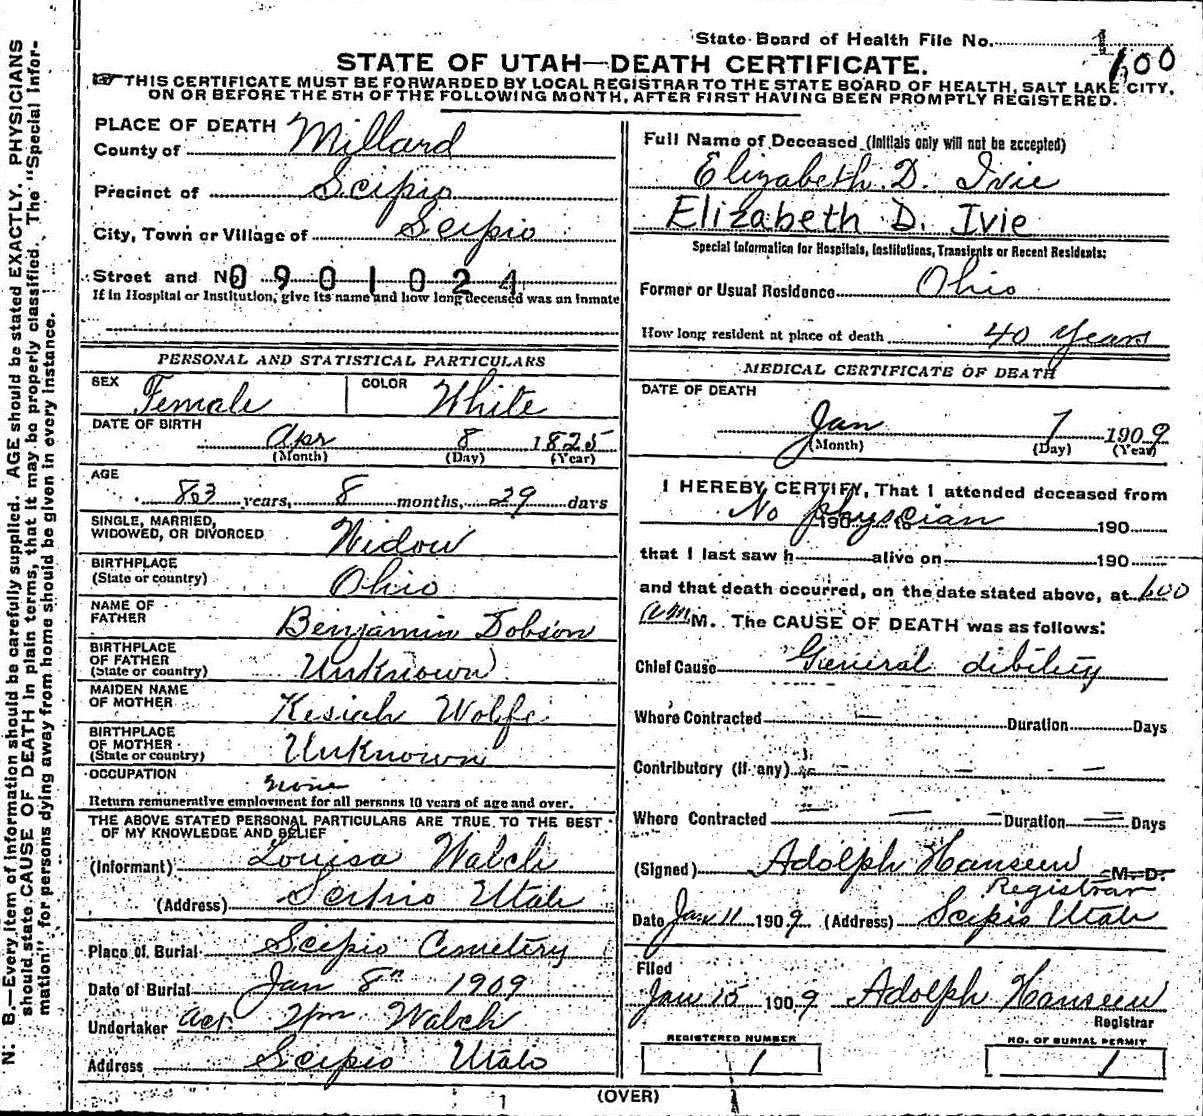 State Board of Health File No. 1
100
STATE OF UTAH—DEATH CERTIFICATE.
☞ THIS CERTIFICATE MUST BE FORWARDED BY LOCAL REGISTRAR TO THE STATE BOARD OF HEALTH, SALT LAKE CITY,
ON OR BEFORE THE 5TH OF THE FOLLOWING MONTH, AFTER FIRST HAVING BEEN PROMPTLY REGISTERED.
N. B.—Every item of information should be carefully supplied. AGE should be stated EXACTLY. PHYSICIANS
should state CAUSE OF DEATH in plain terms, that it may be properly classified. The "Special Infor-
mation" for persons dying away from home should be given in every instance.
PLACE OF DEATH
County of Millard
Precinct of Scipio
City, Town or Village of Scipio
Street and No. 0901024
If in Hospital or Institution, give its name and how long deceased was an inmate
PERSONAL AND STATISTICAL PARTICULARS
SEX Female COLOR White
DATE OF BIRTH
Apr 8 1825
(Month) (Day) (Year)
AGE
83 years, 8 months, 29 days
SINGLE, MARRIED,
WIDOWED, OR DIVORCED Widow
BIRTHPLACE
(State or country) Ohio
NAME OF
FATHER Benjamin Dobson
BIRTHPLACE
OF FATHER
(State or country) Unknown
MAIDEN NAME
OF MOTHER Kesiah Wolfe
BIRTHPLACE
OF MOTHER
(State or country) Unknown
OCCUPATION none
Return remunerative employment for all persons 10 years of age and over.
THE ABOVE STATED PERSONAL PARTICULARS ARE TRUE TO THE BEST
OF MY KNOWLEDGE AND BELIEF
(Informant) Louisa Walch
(Address) Scipio Utah
Place of Burial Scipio Cemetery
Date of Burial Jan 8th 1909
Undertaker act. Wm Walch
Address Scipio Utah
Full Name of Deceased (Initials only will not be accepted)
Elizabeth D. Ivie
Elizabeth D. Ivie
Special Information for Hospitals, Institutions, Transients or Recent Residents:
Former or Usual Residence Ohio
How long resident at place of death 40 Years
MEDICAL CERTIFICATE OF DEATH
DATE OF DEATH
Jan 7 1909
(Month) (Day) (Year)
I HEREBY CERTIFY, That I attended deceased from
No physcian 190 to 190
that I last saw h alive on 190
and that death occurred, on the date stated above, at 600
am M. The CAUSE OF DEATH was as follows:
Chief Cause General dibility
Where Contracted — Duration Days
Contributory (If any) — — —
Where Contracted — — Duration — Days
(Signed) Adolph Hanseen M. D.
Registrar
Date Jan 11 1909 (Address) Scipio Utah
Filed
Jan 15 1909 Adolph Hanseen
Registrar
REGISTERED NUMBER NO. OF BURIAL PERMIT
1 1
(OVER)
1